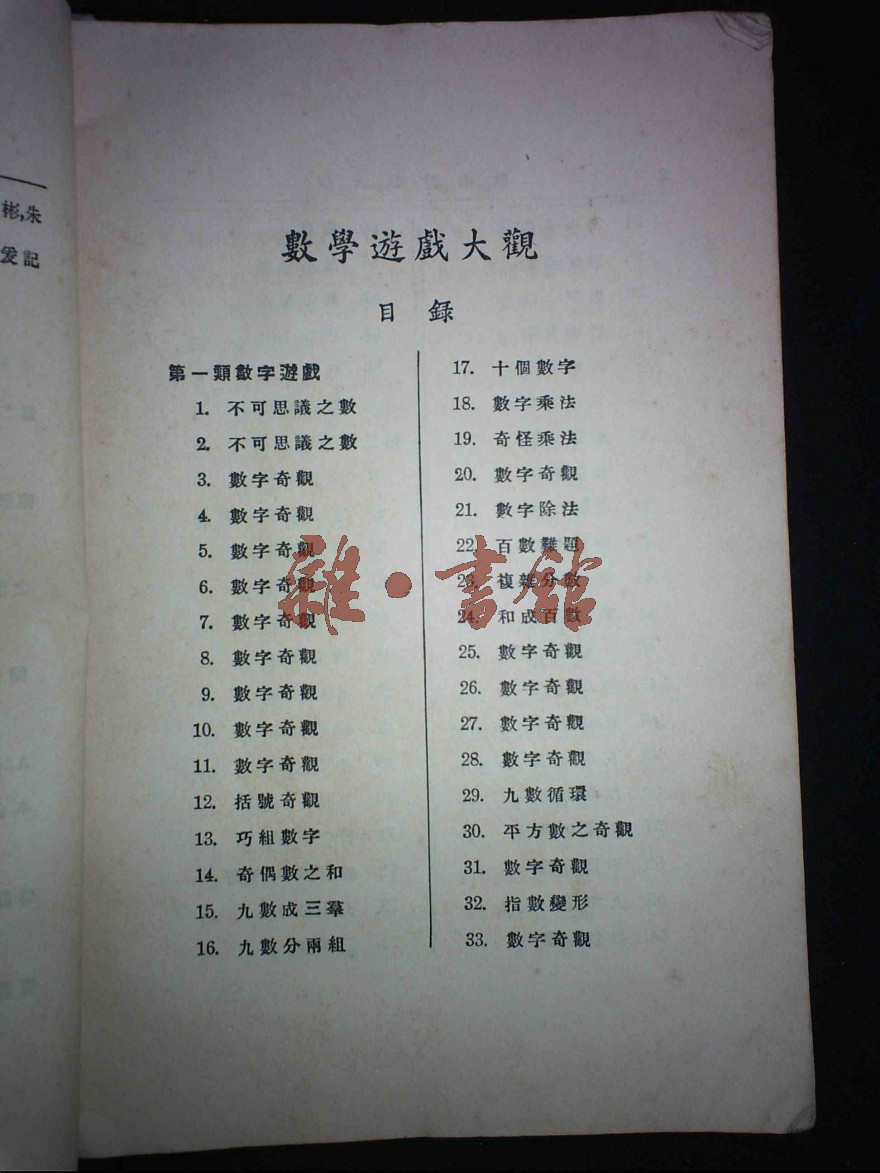 彬,朱
爰記
數學遊戲大觀
目錄
第一類數字遊戲
1. 不可思議之數
2. 不可思議之數
3. 數字奇觀
4. 數字奇觀
5. 數字奇觀
6. 數字奇觀
7. 數字奇觀
8. 數字奇觀
9. 數字奇觀
10. 數字奇觀
11. 數字奇觀
12. 括號奇觀
13. 巧組數字
14. 奇偶數之和
15. 九數成三羣
16. 九數分兩組
17. 十個數字
18. 數字乘法
19. 奇怪乘法
20. 數字奇觀
21. 數字除法
22. 百數難題
23. 複雜分數
24. 和成百數
25. 數字奇觀
26. 數字奇觀
27. 數字奇觀
28. 數字奇觀
29. 九數循環
30. 平方數之奇觀
31. 數字奇觀
32. 指數變形
33. 數字奇觀
雜·書館